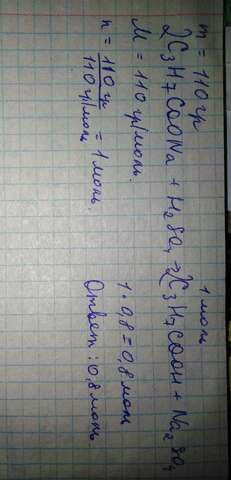 m = 110 гр
1 моль
2C3H7COONa + H2SO4 → 2C3H7COOH + Na2SO4
M = 110 гр/моль.
n = 110 гр / 110 гр/моль = 1 моль.
1 · 0,8 = 0,8 моль
Ответ: 0,8 моль.